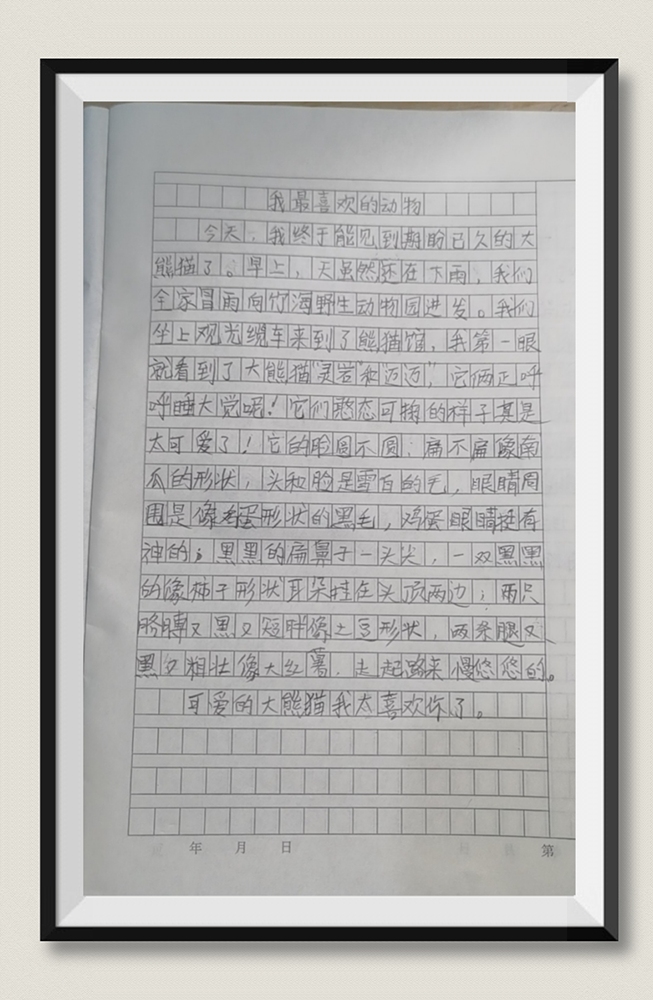 我最喜欢的动物
今天，我终于能见到期盼已久的大
熊猫了。早上，天虽然还在下雨，我们
全家冒雨向竹海野生动物园进发。我们
坐上观光缆车来到了熊猫馆，我第一眼
就看到了大熊猫“灵岩”和“迈迈”，它俩正呼
呼睡大觉呢！它们憨态可掬的样子真是
太可爱了！它的脸圆不圆；扁不扁像南
瓜的形状，头和脸是雪白的毛，眼睛周
围是像鸡蛋形状的黑毛，鸡蛋眼睛挺有
神的；黑黑的扁鼻子一头尖，一双黑黑
的像柿子形状耳朵挂在头顶两边；两只
胳膊又黑又短胖像土豆形状，两条腿又
黑又粗壮像大红薯，走起路来慢悠悠的。
可爱的大熊猫我太喜欢你了。
年 月 日 第